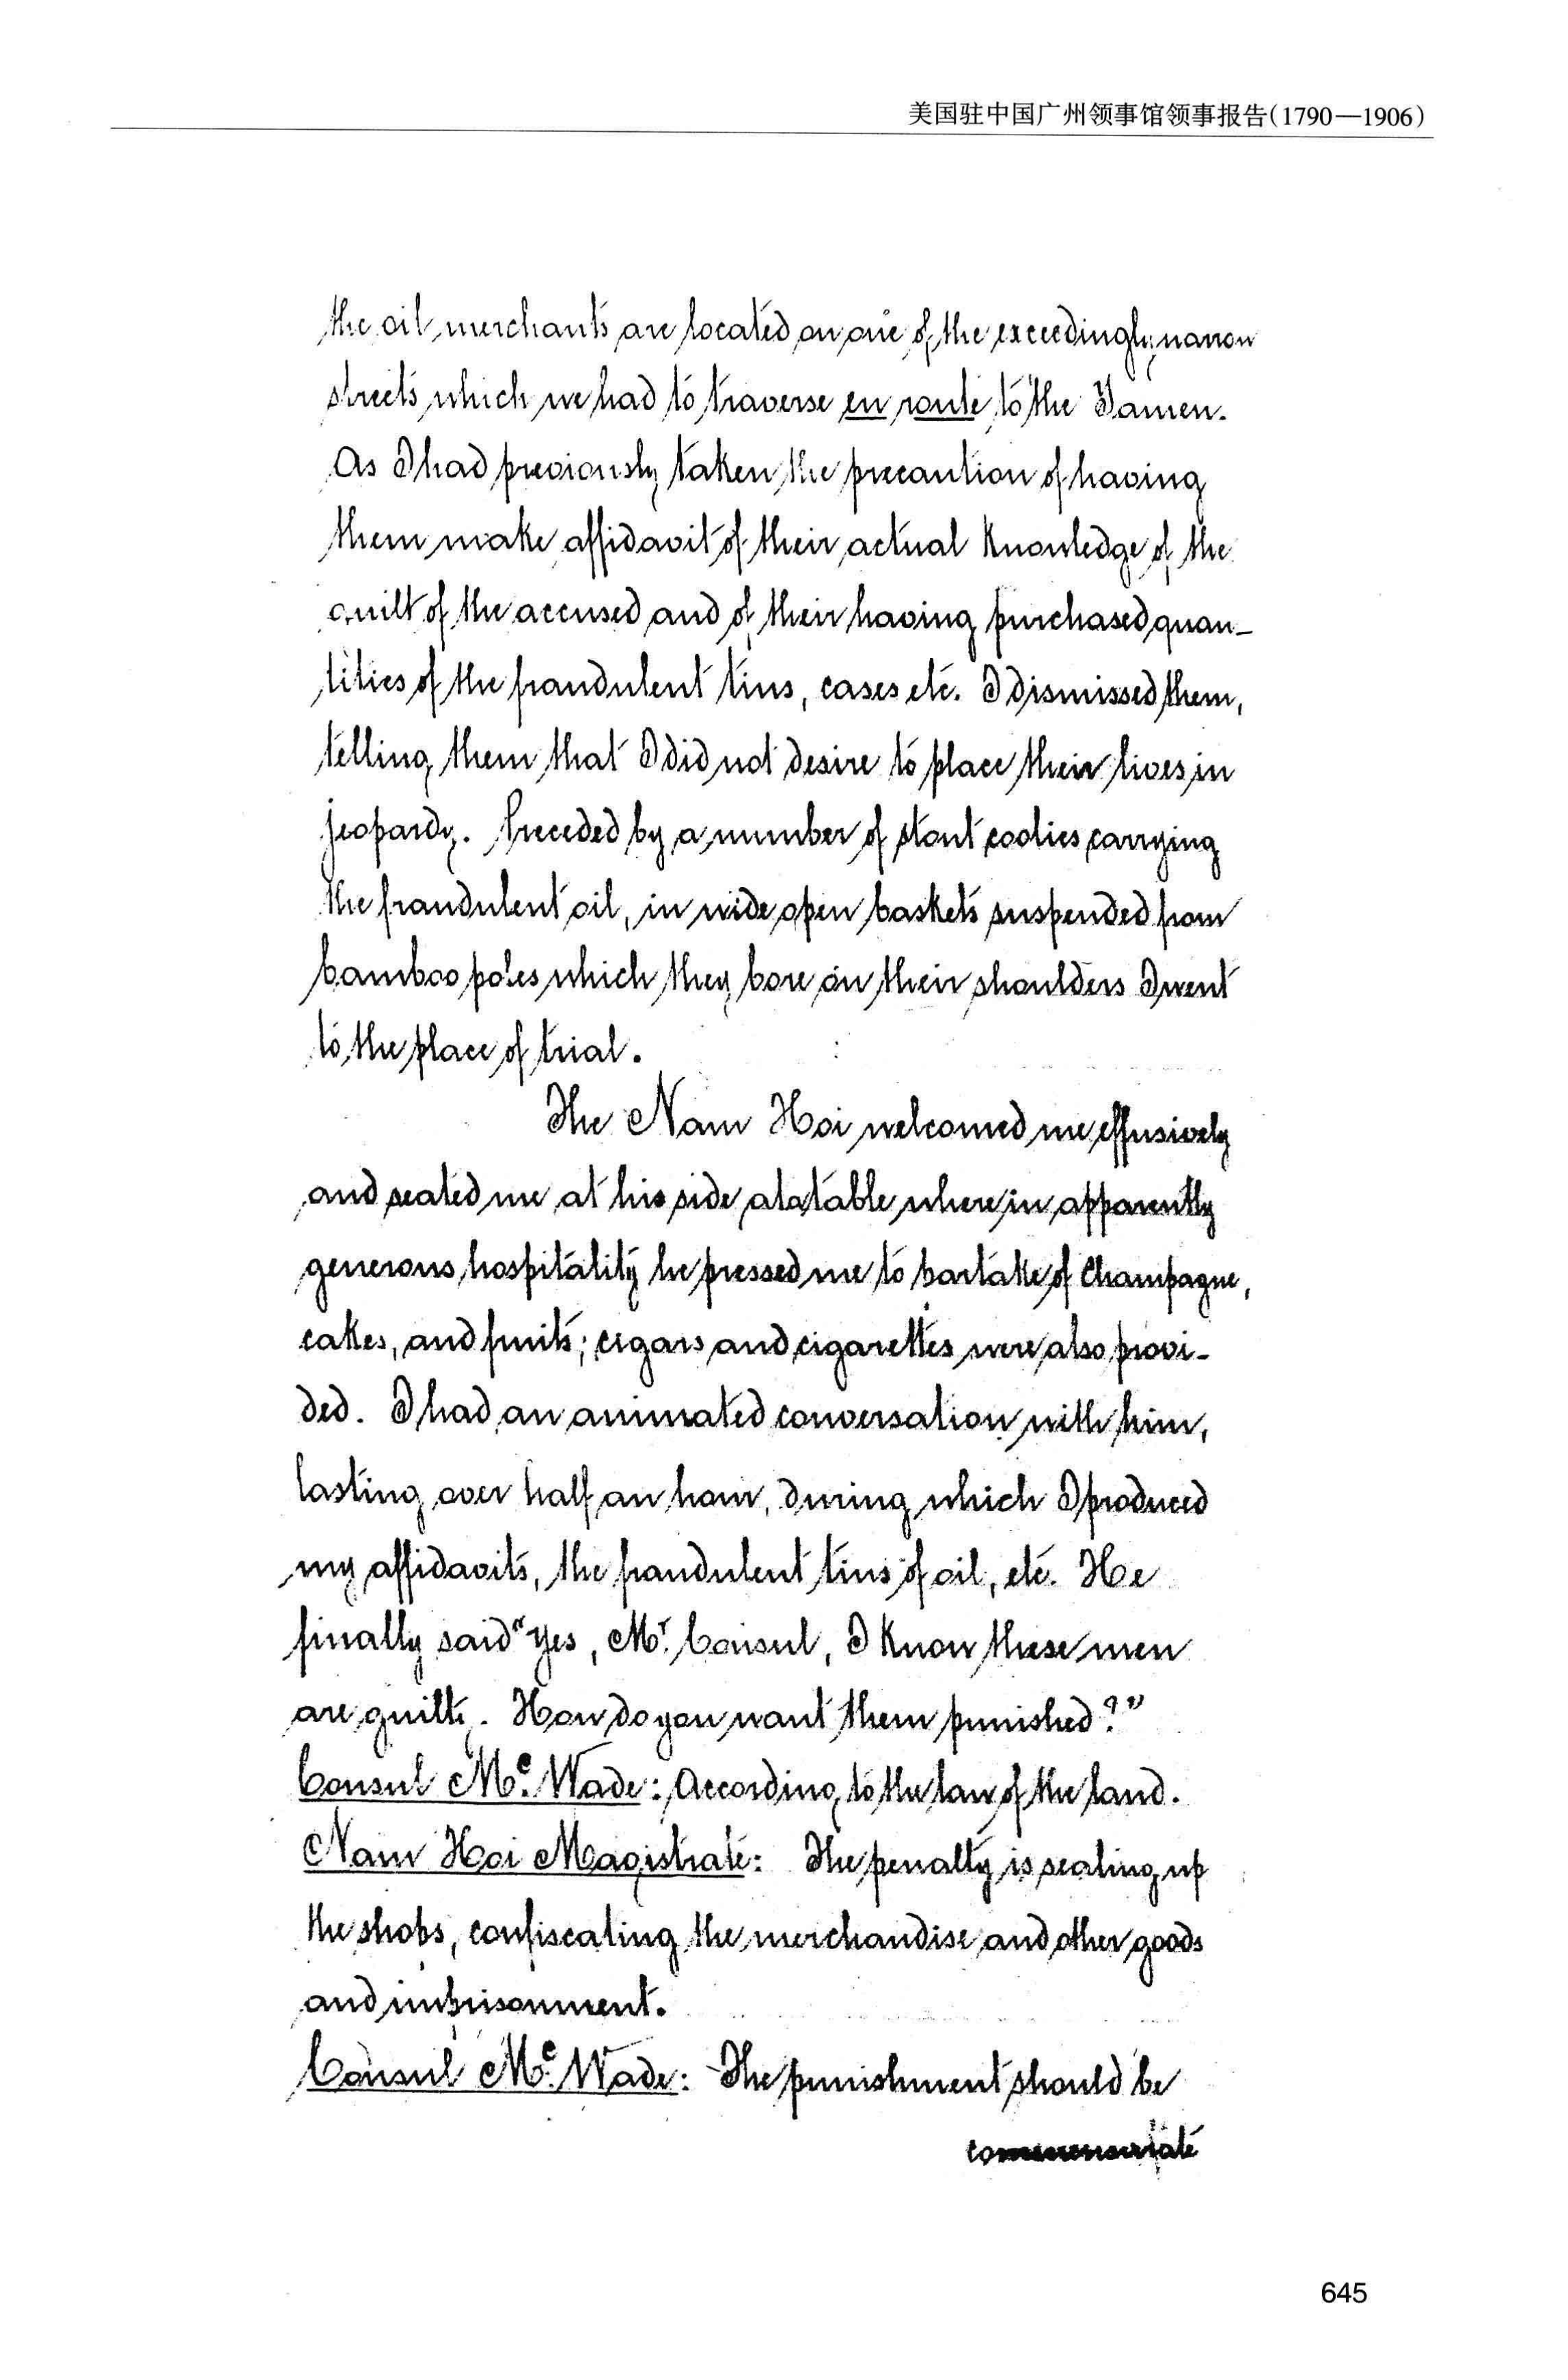 美国驻中国广州领事馆领事报告(1790—1906)
the oil merchants are located on one of the exceedingly narrow
streets which we had to traverse en route to the Yamen.
As I had previously taken the precaution of having
them make affidavit of their actual knowledge of the
guilt of the accused and of their having purchased quan-
tities of the fraudulent tins, cases etc. I dismissed them,
telling them that I did not desire to place their lives in
jeopardy. Preceded by a number of stout coolies carrying
the fraudulent oil, in wide open baskets suspended from
bamboo poles which they bore on their shoulders I went
to the place of trial.
The Nam Hoi welcomed me effusively
and seated me at his side at a table where in apparently
generous hospitality he pressed me to partake of Champagne,
cakes, and fruits; cigars and cigarettes were also provi-
ded. I had an animated conversation with him,
lasting over half an hour, during which I produced
my affidavits, the fraudulent tins of oil, etc. He
finally said "Yes, Mr. Consul, I know these men
are guilty. How do you want them punished?"
Consul McWade: According to the law of the land.
Nam Hoi Magistrate: The penalty is sealing up
the shops, confiscating the merchandise and other goods
and imprisonment.
Consul McWade: The punishment should be
commensurate
645